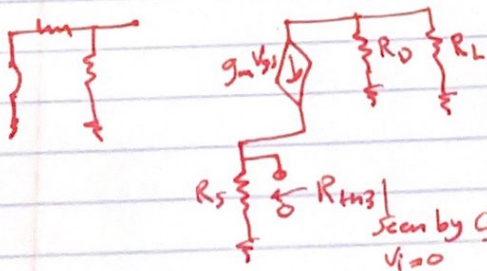 gmVgs
RD
RL
RS
RTH3
seen by C
Vi=0